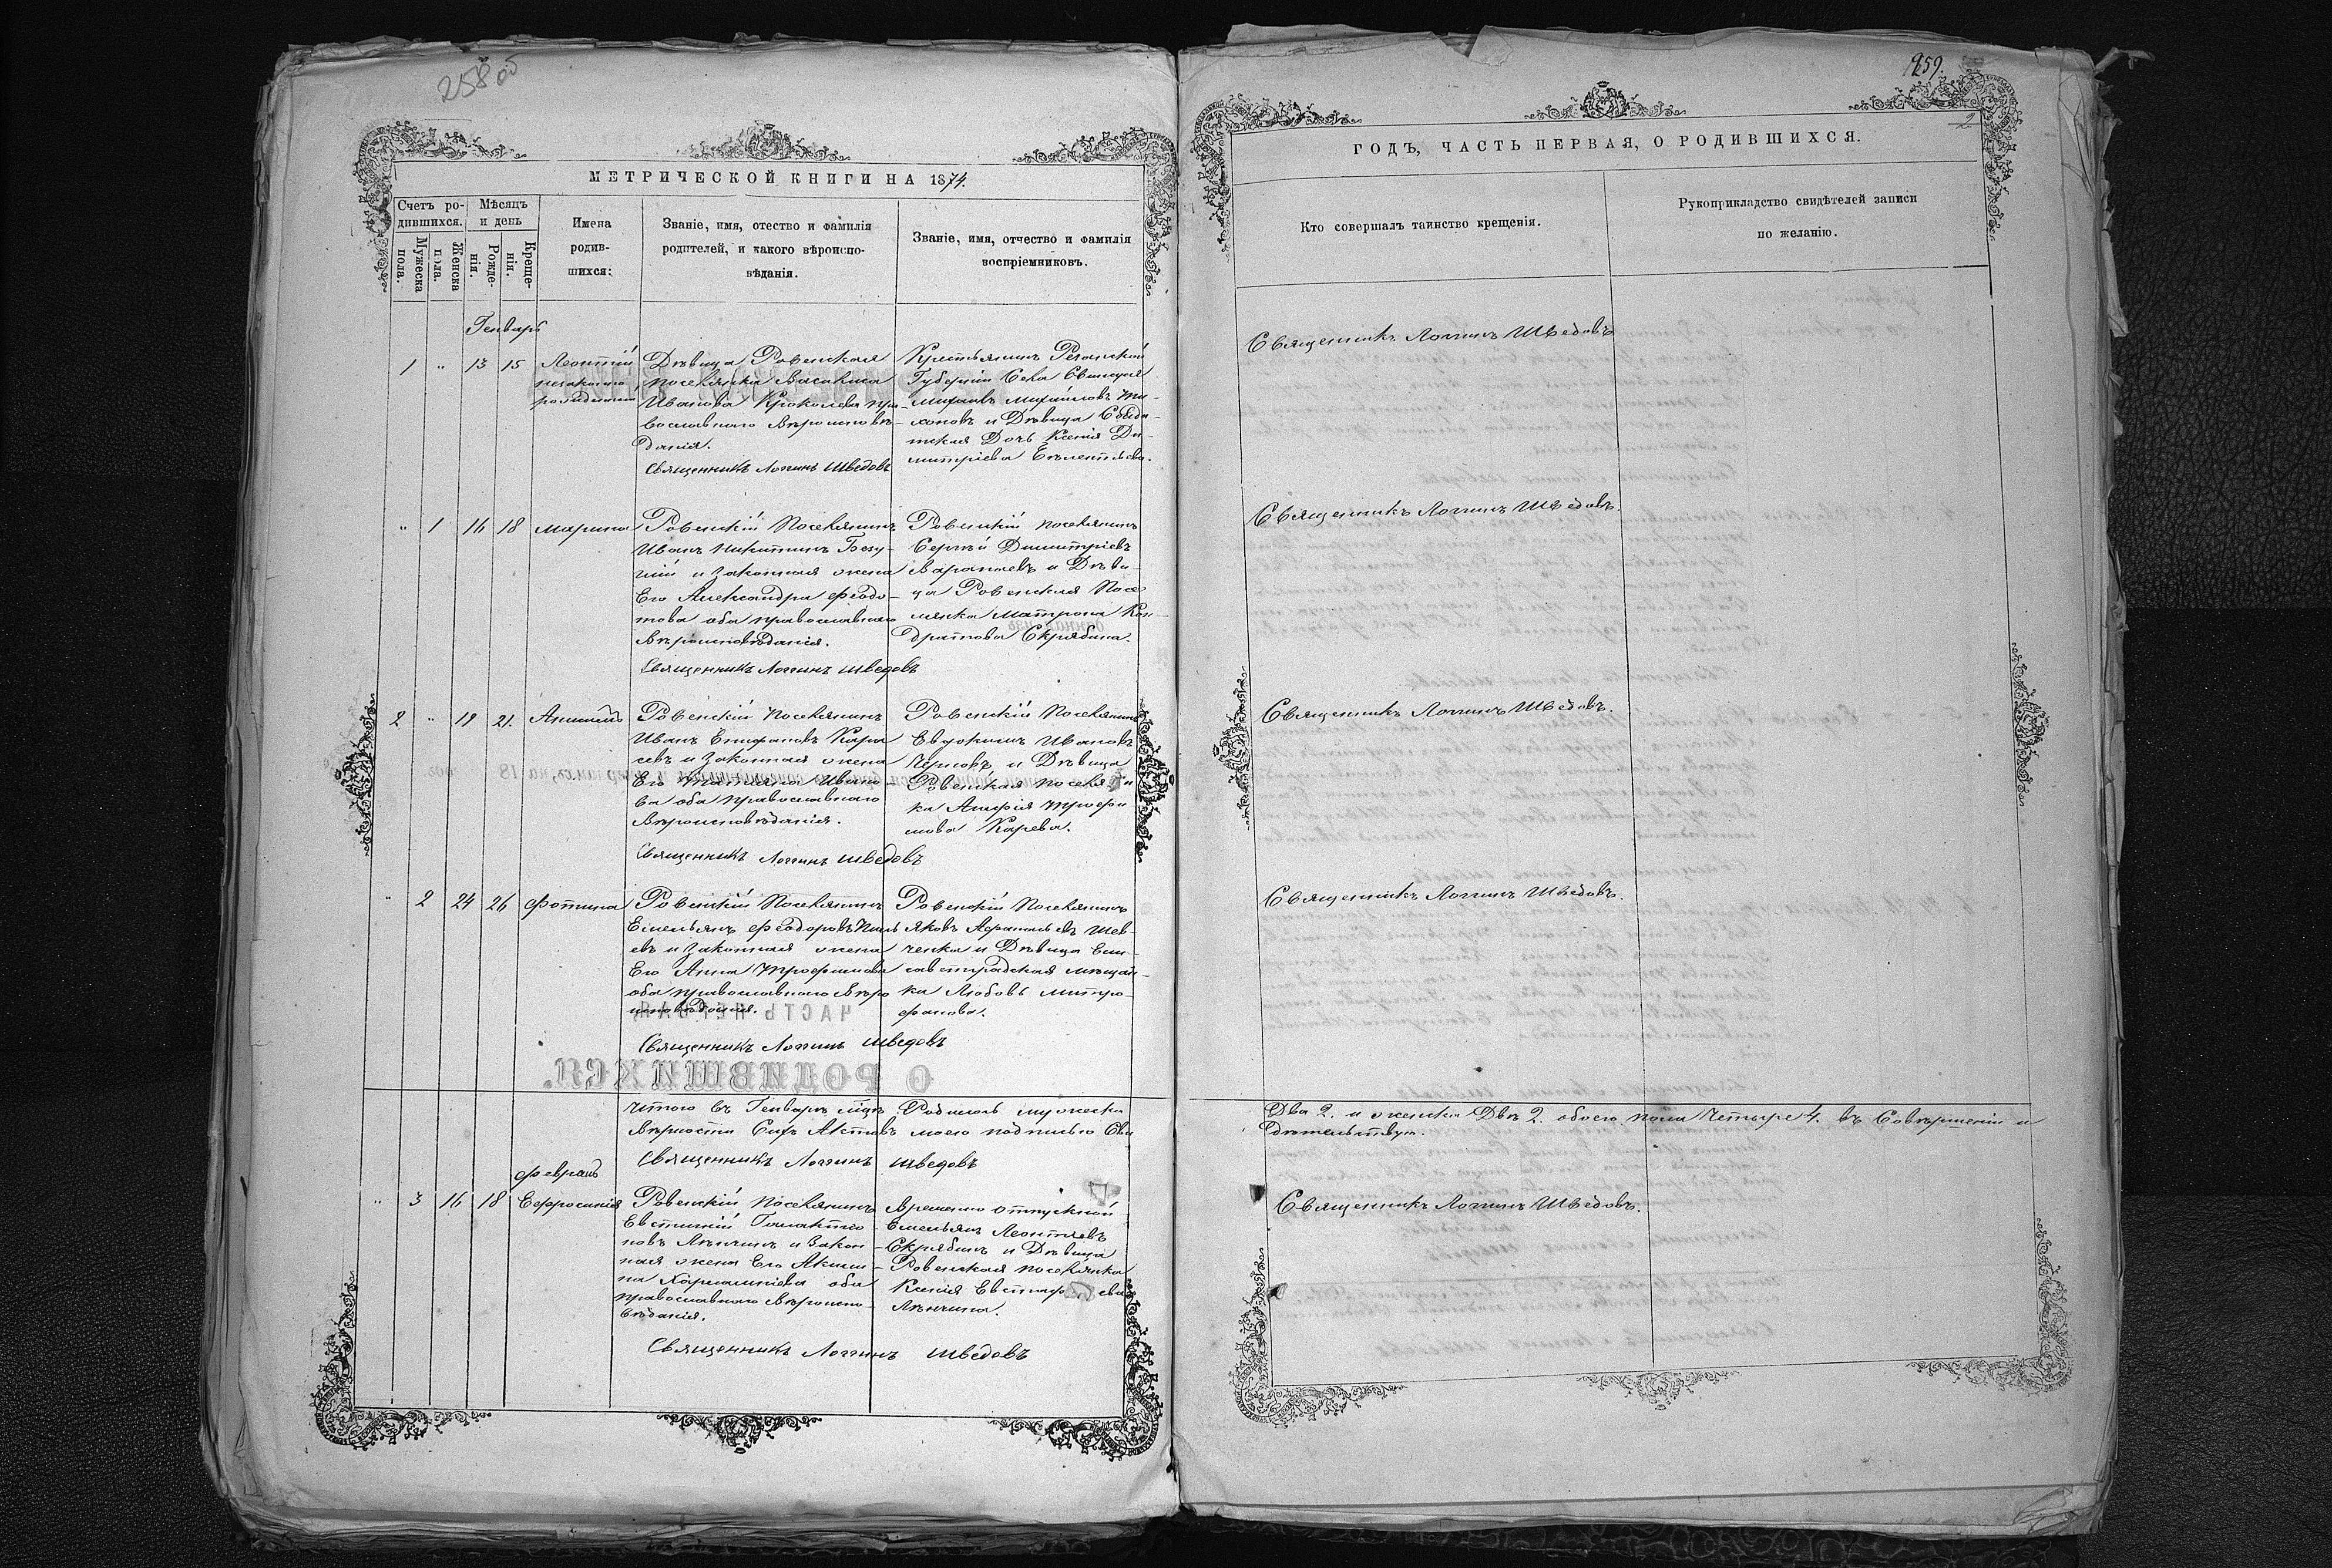 258 об
МЕТРИЧЕСКОЙ КНИГИ НА 1874.
Счетъ ро-
дившихся.
Мѣсяцъ
и день
Мужеска
пола.
Женска
пола.
Рожде-
нія.
Креще-
нія.
Имена
родив-
шихся:
Званіе, имя, отество и фамилія
родителей, и какого вѣроиспо-
вѣданія.
Званіе, имя, отчество и фамилія
воспріемниковъ.
Генварь
1 " 13 15 Леонтій
незаконно
Дѣвица Ровенская
поселянка Василиса
Иванова пра-
вославнаго Вѣроисповѣ-
данія.
Священникъ Логгинъ Шведовъ
Крестьянинъ
Губерніи Села
Михайловъ Ти-
хоновъ и Дѣвица
Дочь Ксенія Ди-
митріева
" 1 16 18 Марина
Ровенскій Поселянинъ
Иванъ Никитинъ
и законная жена
Его Александра Федо-
това оба православнаго
Вѣроисповѣданія.
Священникъ Логгинъ Шведовъ
Ровенскій поселянинъ
Сергѣй Димитріевъ
и Дѣви-
ца Ровенская Посе-
лянка Матрона Кон-
дратова Скрябина.
2 " 19 21.
Ровенскій Поселянинъ
Иванъ Епифановъ Каре
евъ и Законная жена
Его Татіяна Ивано-
ва оба православнаго
Вѣроисповѣданія.
Священникъ Логгинъ Шведовъ
Ровенскій Поселянинъ
Евдокимъ Ивановъ
и Дѣвица
Ровенская поселян
ка Трофи
мова Карева.
" 2 24 26 Фотина
Ровенскій Поселянинъ
Емельянъ Феодоровъ
евъ и Законная жена
Его Анна Трофимова
оба православнаго Вѣро
исповѣданія.
Священникъ Логгинъ Шведовъ
Ровенскій Поселянинъ
Яковъ Шев-
ченка и Дѣвица Ели-
саветградская мѣщан-
ка Любовь Митро-
фанова.
Итого въ Генварѣ мцѣ Родилось мужеска
Вѣрности Сихъ Актовъ моею подписью Сви
Священникъ Логгинъ Шведовъ
Февраль
" 3 16 18 Ефросинія
Ровенскій Поселянинъ
Евстигній Галактіо-
новъ Лѣнчинъ и Закон-
ная жена Его Акили-
на Харлампіева оба
православнаго Вѣроиспо-
вѣданія.
Временно отпускной
Емельянъ Леонтьевъ
Скрябинъ и Дѣвица
Ровенская поселянка
Ксенія
Лѣнчина.
Священникъ Логгинъ Шведовъ
259.
2
ГОДЪ, ЧАСТЬ ПЕРВАЯ, О РОДИВШИХСЯ.
Кто совершалъ таинство крещенія.
Рукоприкладство свидѣтелей записи
по желанію.
Священникъ Логгинъ Шведовъ
Священникъ Логгинъ Шведовъ.
Священникъ Логгинъ Шведовъ.
Священникъ Логгинъ Шведовъ.
Два 2. и женска Двѣ 2. обоего пола Четыре 4. въ Совершеніи и
дѣтельствую.
Священникъ Логгинъ Шведовъ.